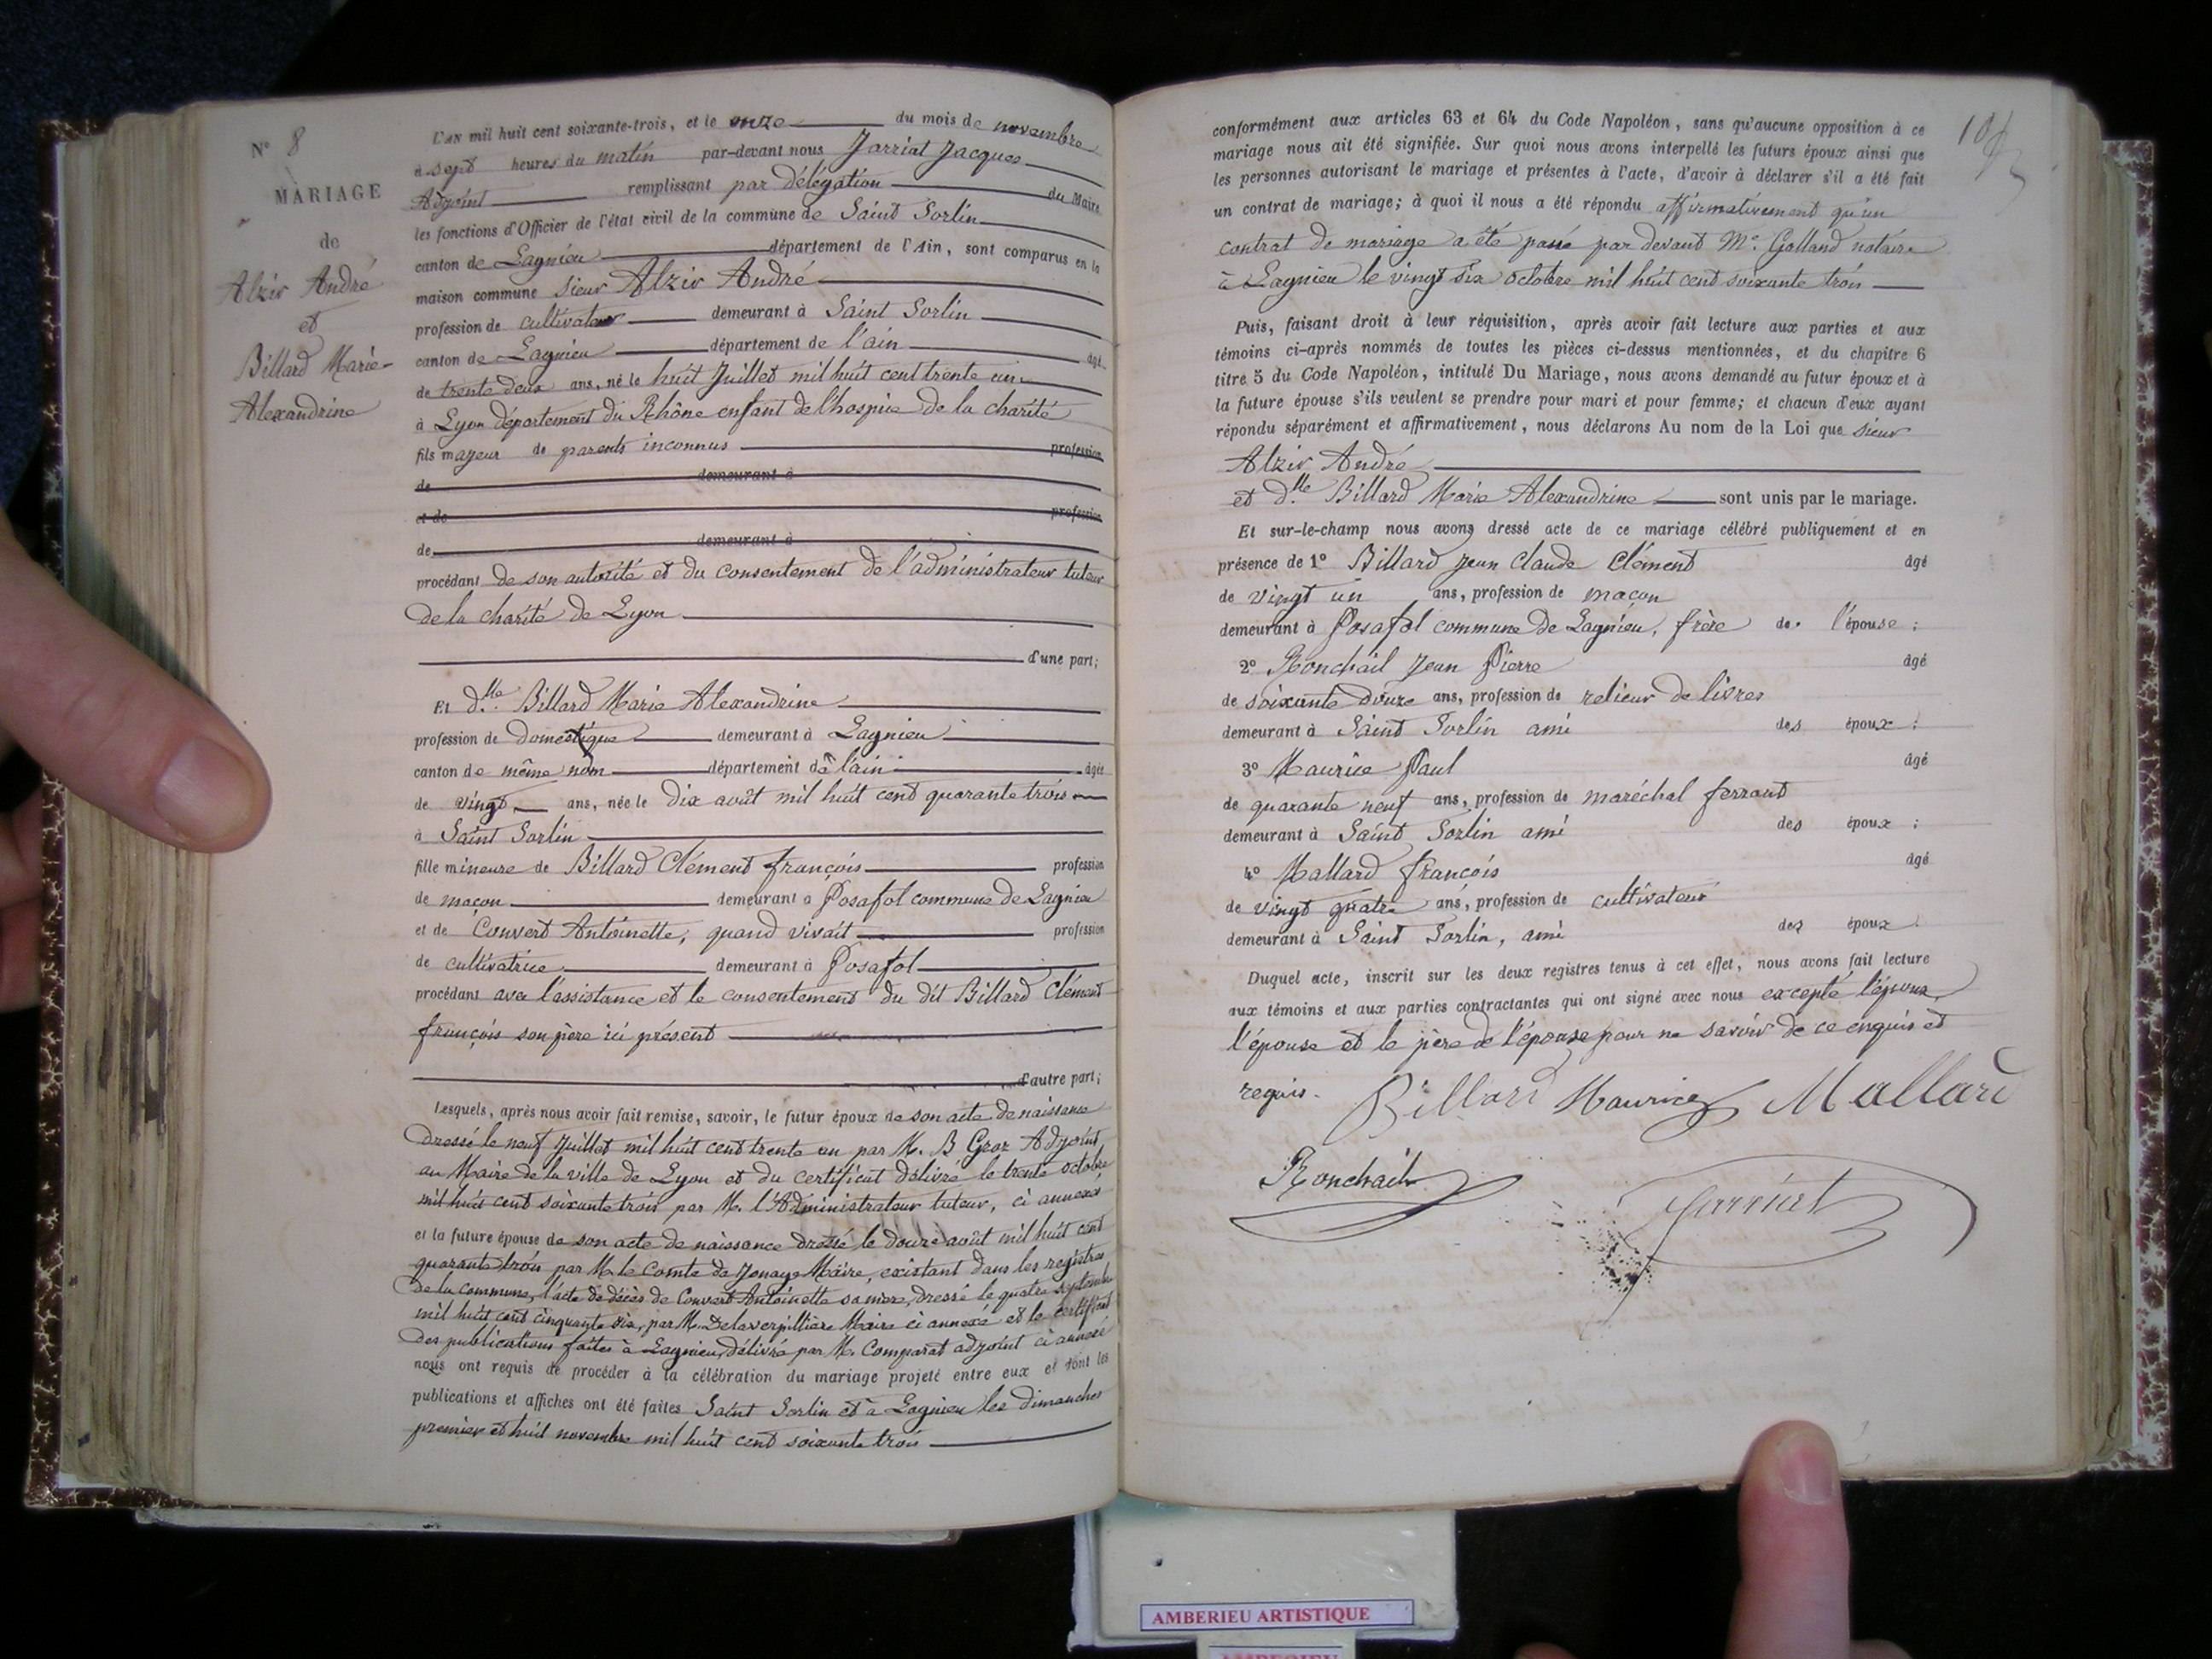 N° 8
MARIAGE
de
Alzir André
et
Billard Marie-
Alexandrine
L'AN mil huit cent soixante-trois, et le onze du mois de novembre
à sept heures du matin par-devant nous Jarriat Jacques
Adjoint remplissant par délégation du Maire
les fonctions d'Officier de l'état civil de la commune de Saint Sorlin
canton de Lagnieu département de l'Ain, sont comparus en la
maison commune sieur Alzir André
profession de cultivateur demeurant à Saint Sorlin
canton de Lagnieu département de l'ain âgé
de trente deux ans, né le huit Juillet mil huit cent trente un
à Lyon département du Rhône enfant de l'hospice de la charité
fils majeur de parents inconnus profession
de demeurant à
et de profession
de demeurant à
procédant de son autorité et du consentement de l'administrateur tuteur
de la charité de Lyon
d'une part;
Et dlle Billard Marie Alexandrine
profession de domestique demeurant à Lagnieu
canton de même nom département de l'ain âgée
de vingt ans, née le dix août mil huit cent quarante trois
à Saint Sorlin
fille mineure de Billard Clément françois profession
de maçon demeurant à Posafol commune de Lagnieu
et de Convert Antoinette, quand vivait profession
de cultivatrice demeurant à Posafol
procédant avec l'assistance et le consentement du dit Billard Clément
françois son père ici présent
d'autre part;
Lesquels, après nous avoir fait remise, savoir, le futur époux de son acte de naissance
dressé le neuf Juillet mil huit cent trente un par M. B Gros Adjoint
au Maire de la ville de Lyon et du certificat délivré le trente octobre
mil huit cent soixante trois par M. l'Administrateur tuteur, ci annexé
et la future épouse de son acte de naissance dressé le douze août mil huit cent
quarante trois par M. le Comte de Jonage Maire, existant dans les registres
de la commune, l'acte de décès de Convert Antoinette sa mère, dressé le quatre septembre
mil huit cent cinquante six, par M. Delaverpillière Maire ci annexé et le certificat
des publications faites à Lagnieu, délivré par M. Comparat adjoint ci annexé
nous ont requis de procéder à la célébration du mariage projeté entre eux et dont les
publications et affiches ont été faites Saint Sorlin et à Lagnieu les dimanches
premier et huit novembre mil huit cent soixante trois
conformément aux articles 63 et 64 du Code Napoléon, sans qu'aucune opposition à ce
mariage nous ait été signifiée. Sur quoi nous avons interpellé les futurs époux ainsi que
les personnes autorisant le mariage et présentes à l'acte, d'avoir à déclarer s'il a été fait
un contrat de mariage; à quoi il nous a été répondu affirmativement qu'un
contrat de mariage a été passé par devant Me. Golland notaire
à Lagnieu le vingt six octobre mil huit cent soixante trois
Puis, faisant droit à leur réquisition, après avoir fait lecture aux parties et aux
témoins ci-après nommés de toutes les pièces ci-dessus mentionnées, et du chapitre 6
titre 5 du Code Napoléon, intitulé Du Mariage, nous avons demandé au futur époux et à
la future épouse s'ils veulent se prendre pour mari et pour femme; et chacun d'eux ayant
répondu séparément et affirmativement, nous déclarons Au nom de la Loi que sieur
Alzir André
et dlle Billard Marie Alexandrine sont unis par le mariage.
Et sur-le-champ nous avons dressé acte de ce mariage célébré publiquement et en
présence de 1° Billard Jean Claude Clément âgé
de vingt un ans, profession de maçon
demeurant à Posafol commune de Lagnieu, frère de l'épouse;
2° Ronchail Jean Pierre âgé
de soixante douze ans, profession de relieur de livres
demeurant à Saint Sorlin ami des époux;
3° Maurice Paul âgé
de quarante neuf ans, profession de maréchal ferrant
demeurant à Saint Sorlin ami des époux;
4° Mallard françois âgé
de vingt quatre ans, profession de cultivateur
demeurant à Saint Sorlin, ami des époux.
Duquel acte, inscrit sur les deux registres tenus à cet effet, nous avons fait lecture
aux témoins et aux parties contractantes qui ont signé avec nous excepté l'époux,
l'épouse et le père de l'épouse pour ne savoir de ce enquis et
requis. Billard Maurice Mallard
Ronchail
Jarriat
AMBERIEU ARTISTIQUE